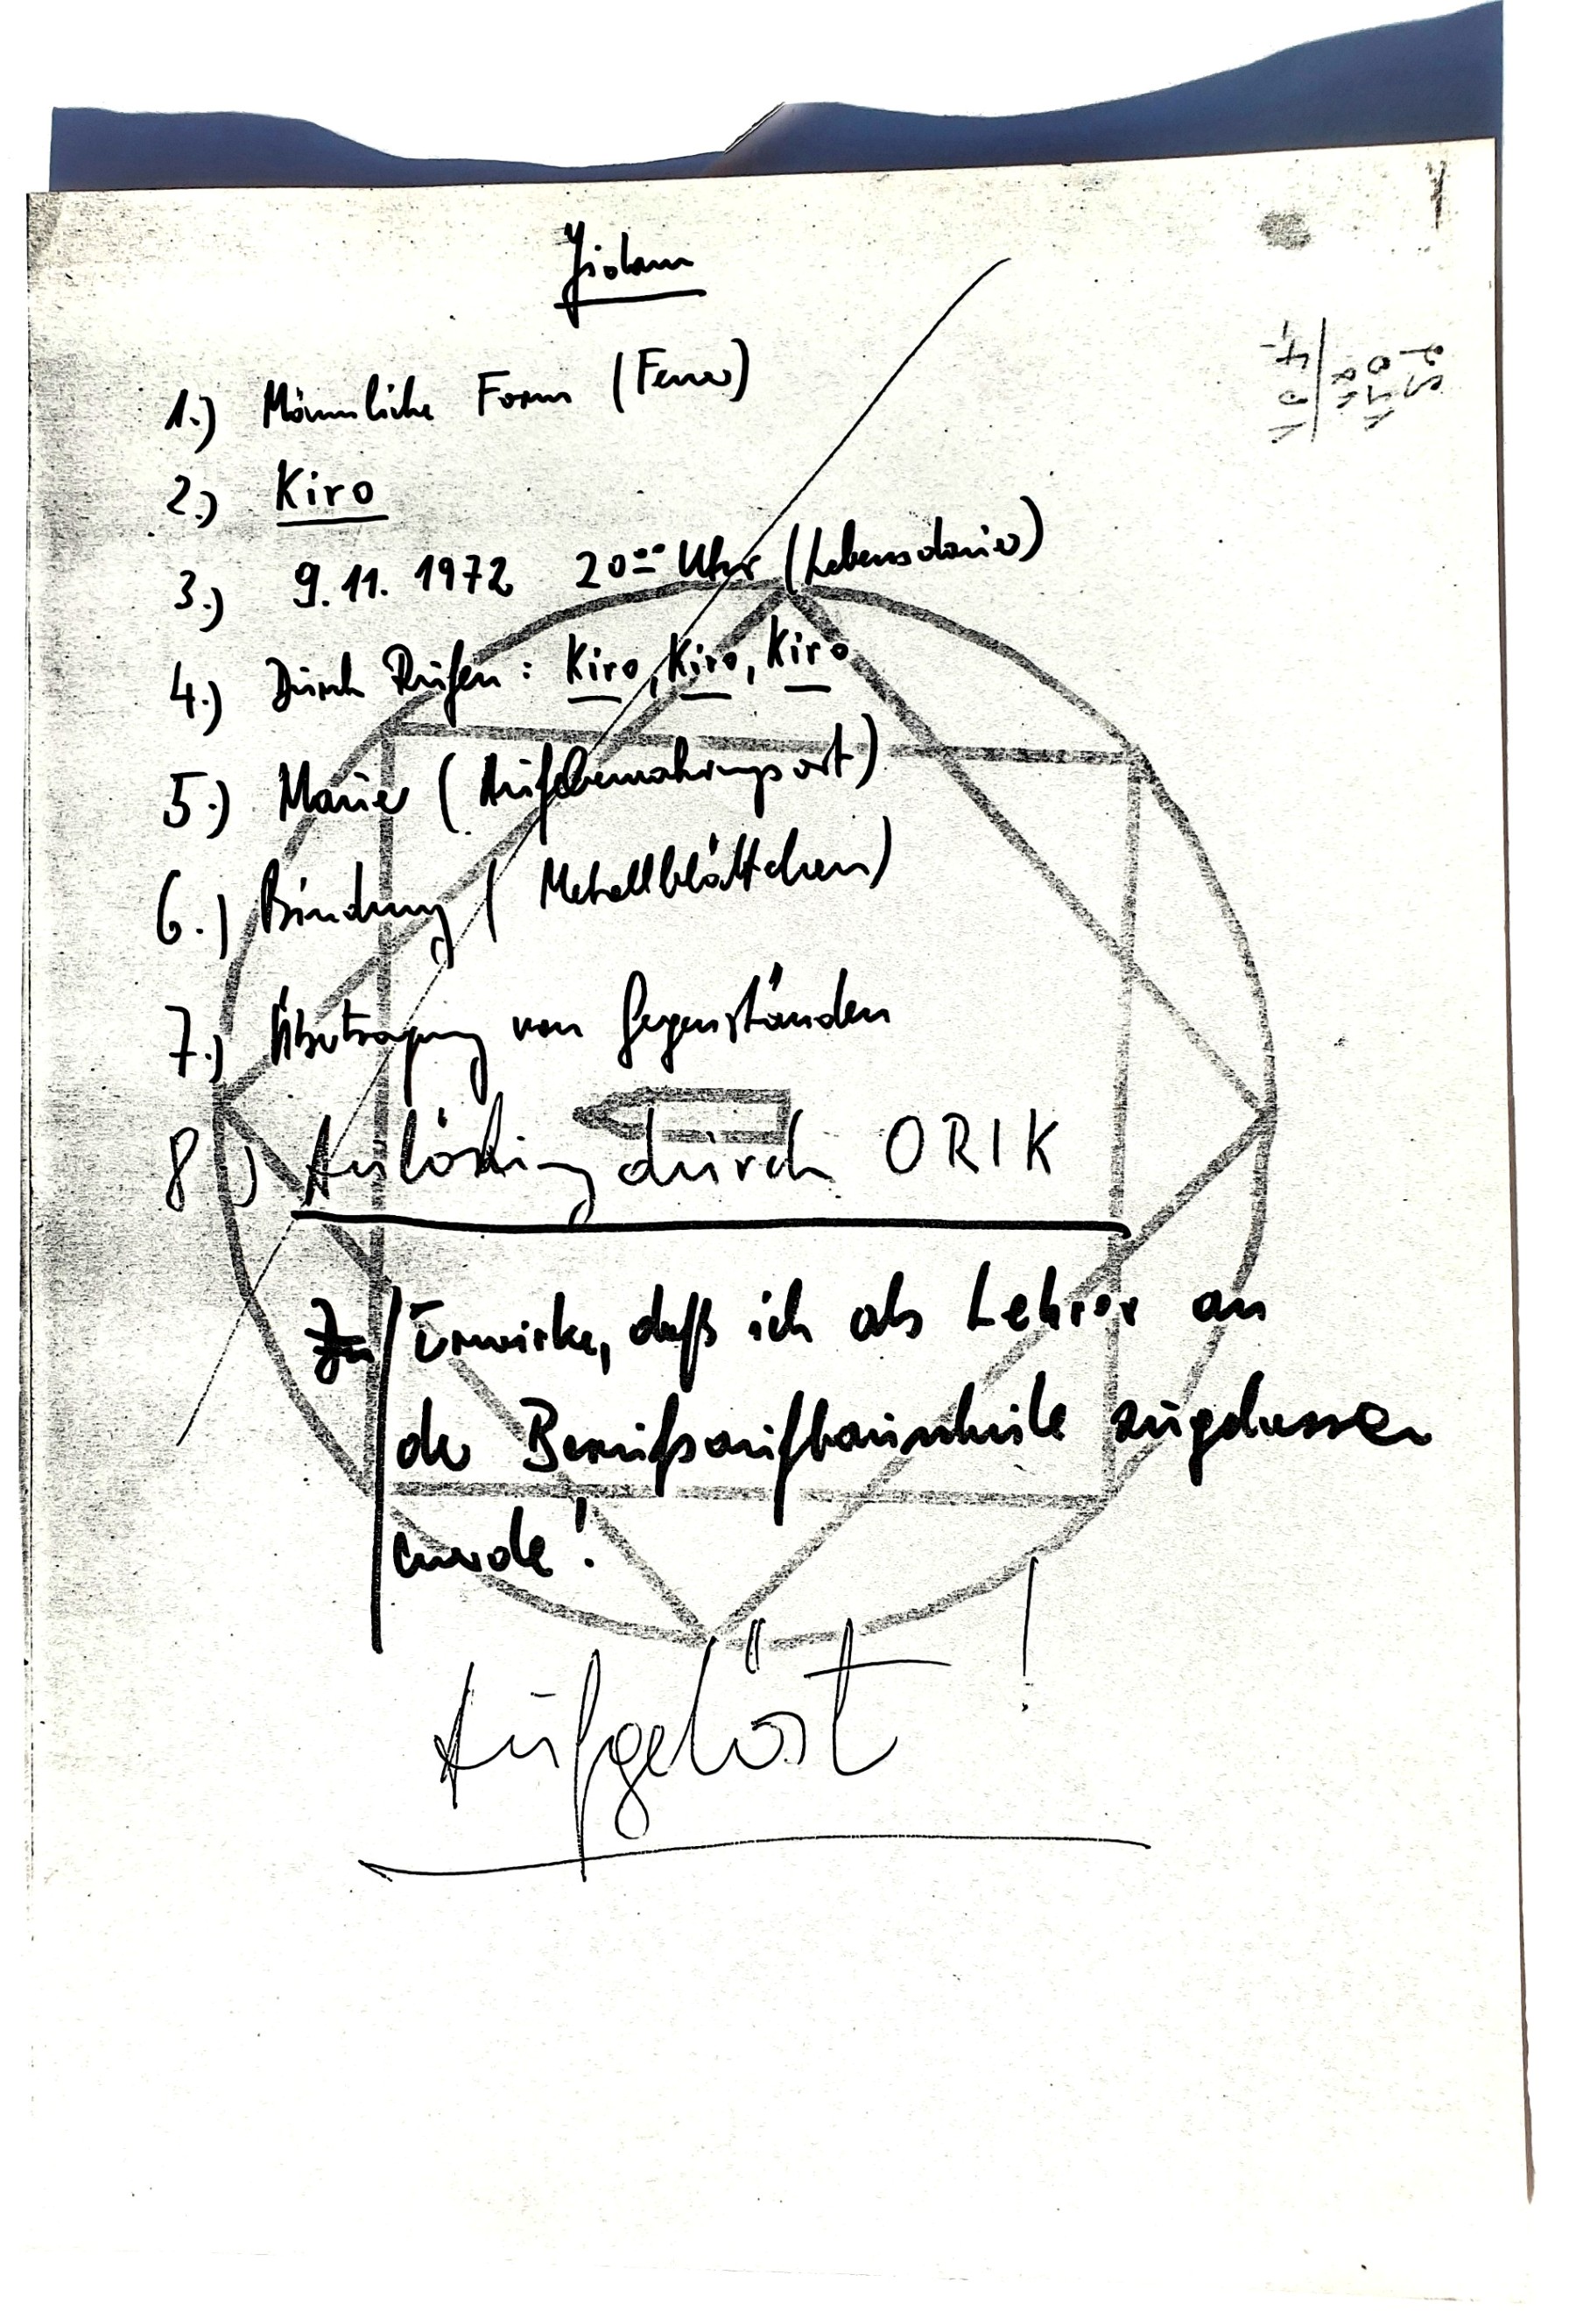 1.) Männliche Form (Feuer)
2.) Kiro
3.) 9.11.1972 20⁰⁰ Uhr (Lebensdauer)
4.) Durch Rufen: Kiro, Kiro, Kiro
5.) Mauer (Aufbewahrungsort)
6.) Bindung (Metallblättchen)
7.) Übertragung von Gegenständen
8.) Auslöschung durch ORIK
Erwirke, daß ich als Lehrer an
der Berufsaufbauschule zugelassen
werde!
Aufgelöst!